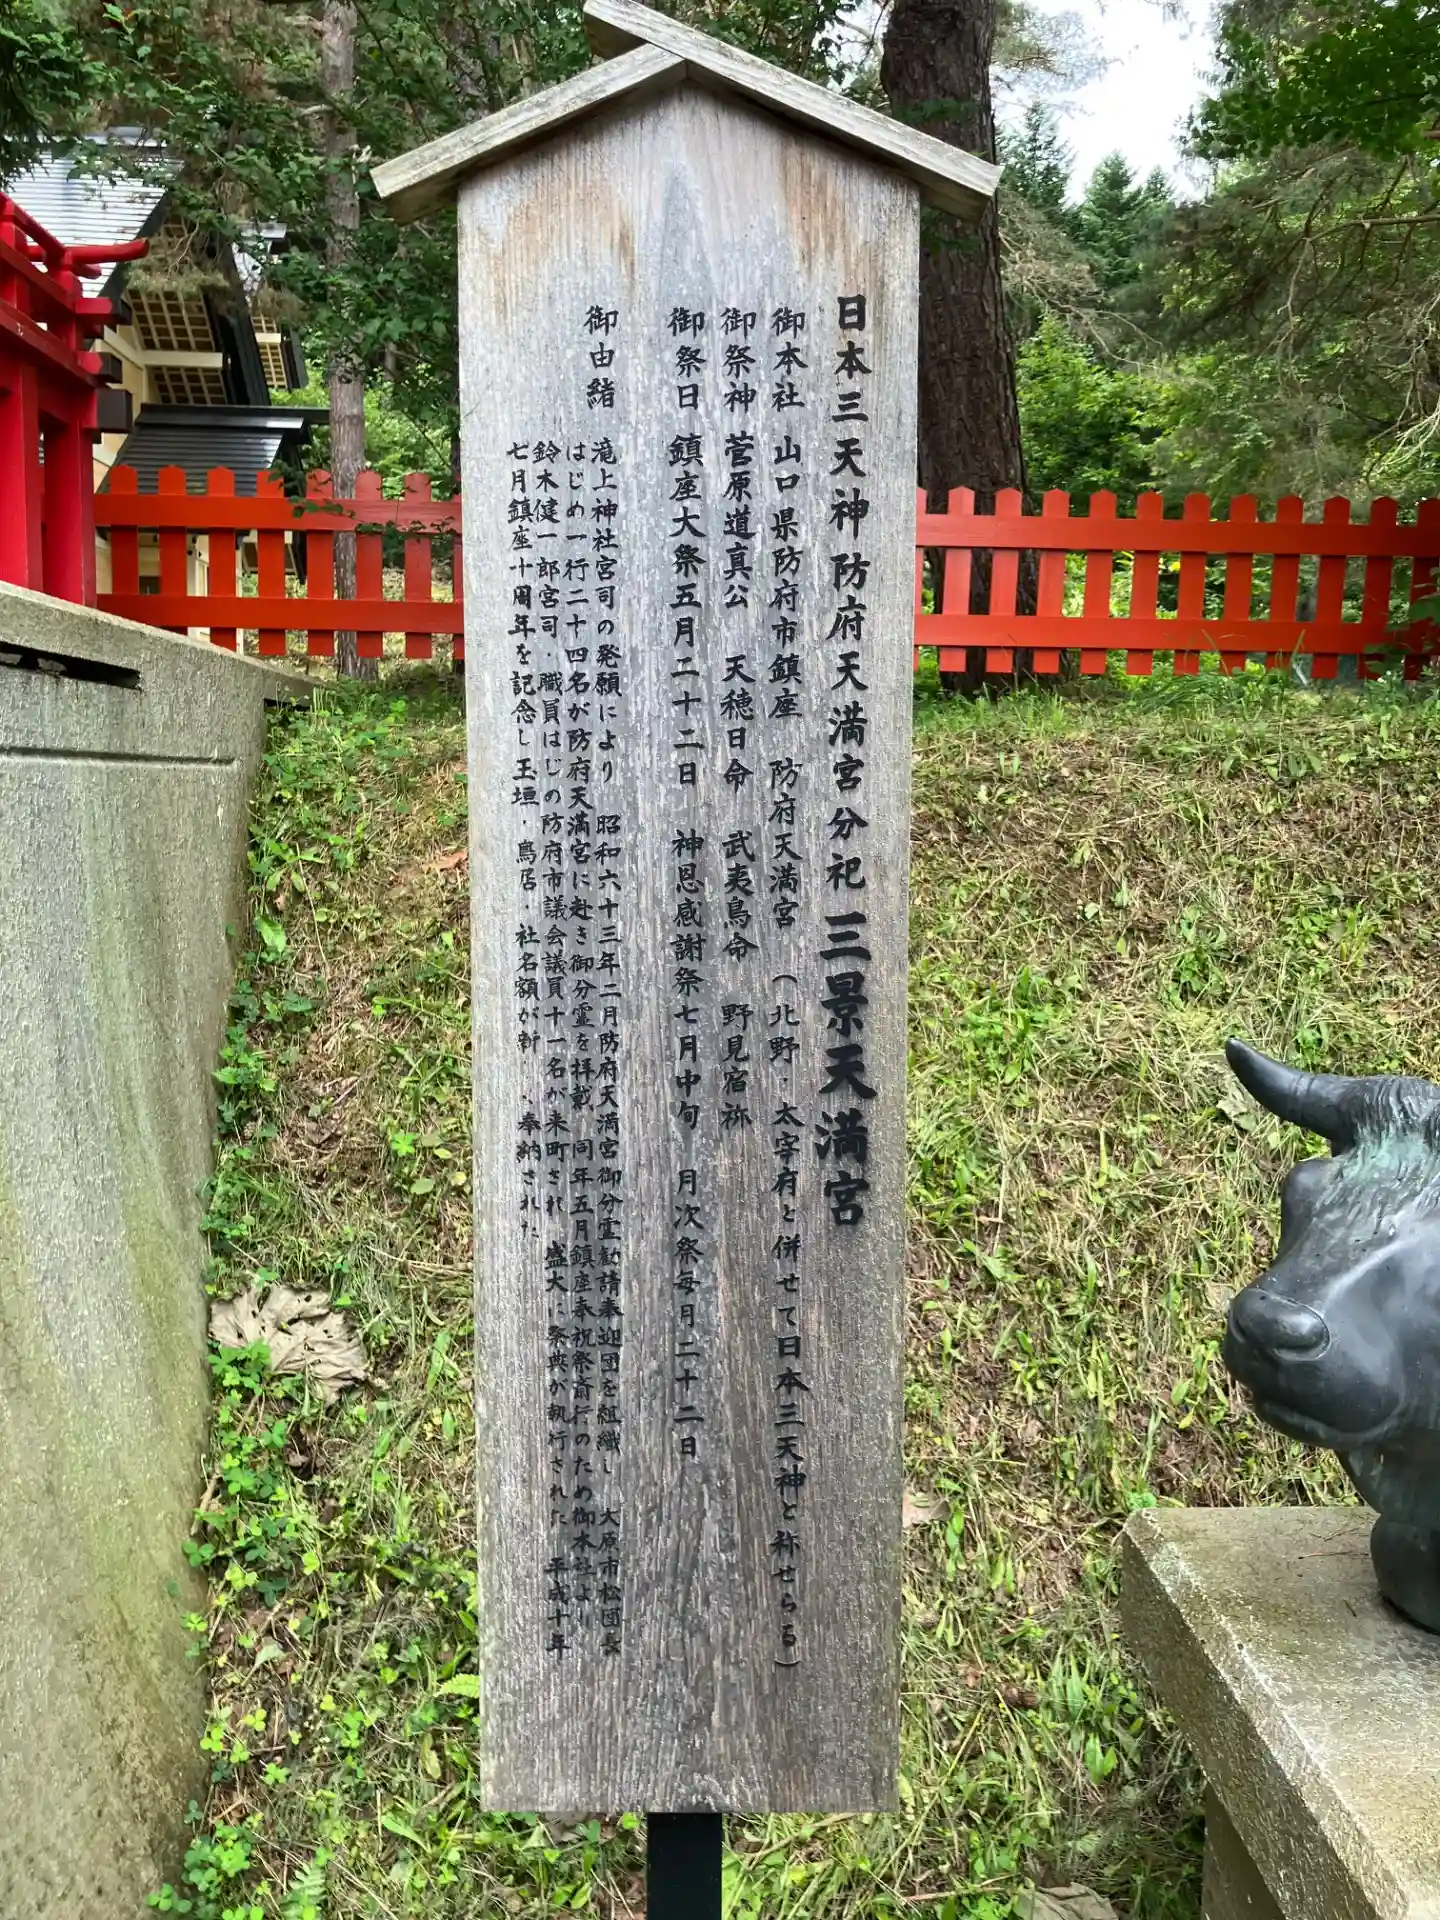 日本三天神防府天満宮分祀 三景天満宮
御本社 山口県防府市鎮座 防府天満宮 (北野・太宰府と併せて日本三天神と称せらる)
御祭神 菅原道真公 天穂日命 武夷鳥命 野見宿祢
御祭日 鎮座大祭五月二十二日 神恩感謝祭七月中旬 月次祭毎月二十二日
御由緒 滝上神社宮司の発願により 昭和六十三年二月防府天満宮御分霊勧請奉迎団を組織し 大原市松団長
はじめ一行二十四名が防府天満宮に赴き御分霊を拝戴、同年五月鎮座奉祝祭斎行のため御本社より
鈴木健一郎宮司・職員はじめ防府市議会議員十一名が来町され 盛大に祭典が執行された 平成十年
七月鎮座十周年を記念し玉垣・鳥居・社名額が新 奉納された